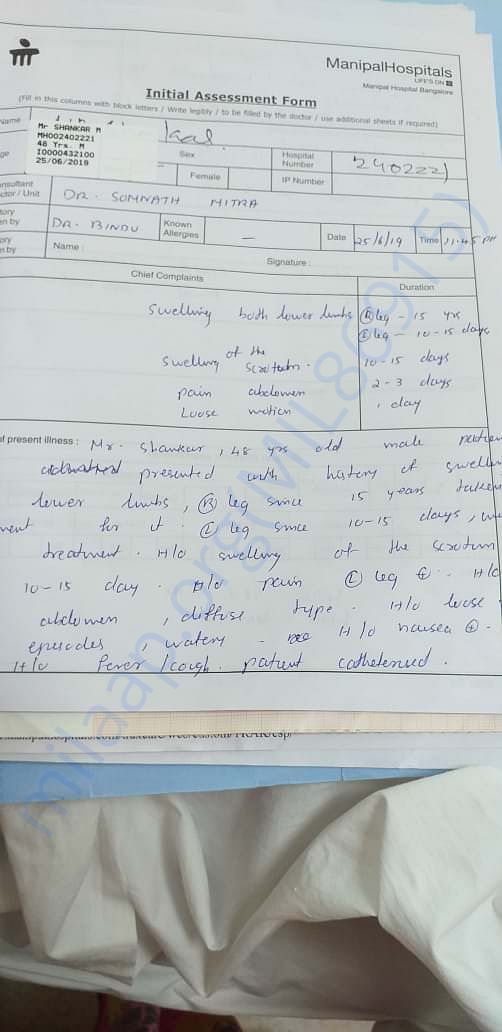 ManipalHospitals
LIFE'S ON
Manipal Hospital Bangalore
Initial Assessment Form
(Fill in this columns with block letters / Write legibly / to be filled by the doctor / use additional sheets if required)
Name
Mr SHANKAR M
MH002402221
48 Yrs. M
I0000432100
25/06/2019
Sex
Female
Hospital Number
2402221
IP Number
DR. SOMNATH MITRA
DR. BINDU
Known Allergies
—
Date 25/6/19 Time 11.45 PM
Name :
Signature :
Chief Complaints
Duration
Swelling both lower limbs Ⓡ leg - 15 yrs
Ⓛ leg - 10-15 days
Swelling of the Scrotum. 10-15 days
pain abdomen 2-3 days
Loose motion 1 day
of present illness : Mr. Shankar, 48 yrs old male
presented with history of
lower limbs, Ⓡ leg since 15 years taken
for it. Ⓛ leg since 10-15 days,
treatment. H/o swelling of the scrotum
10-15 day. H/o pain Ⓛ leg ⊕. H/o
abdomen, diffuse type. H/o loose
episodes, watery - H/o nausea ⊕.
H/o fever/cough. patient catheterised.
milaap.org(MIL86915)